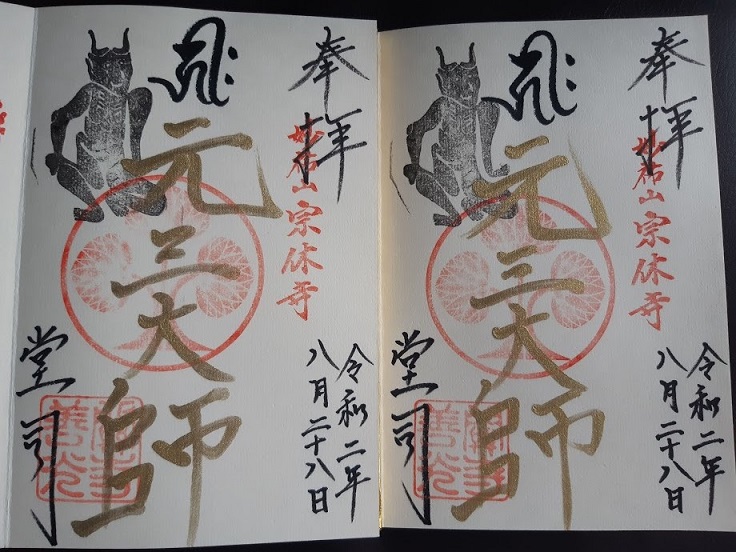 奉拝
妙祐山宗休寺
令和二年
八月二十八日
元三大師
堂司
奉拝
妙祐山宗休寺
令和二年
八月二十八日
元三大師
堂司